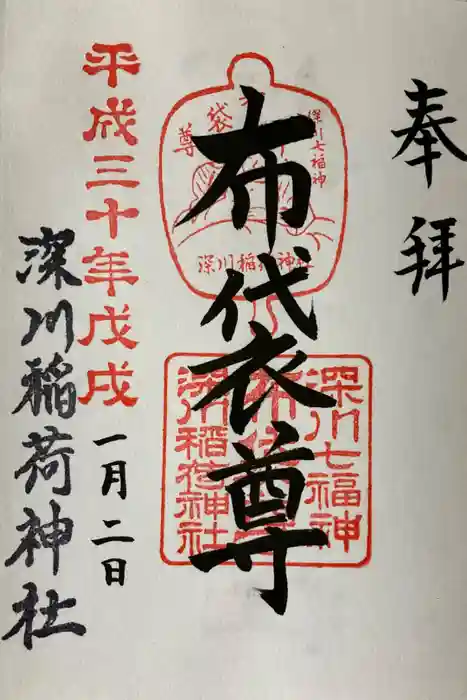 奉拝
深川七福神
布袋尊
深川稲荷神社
布代衣尊
深川七福神
布袋尊
深川稲荷神社
平成三十年戊戌
一月二日
深川稲荷神社